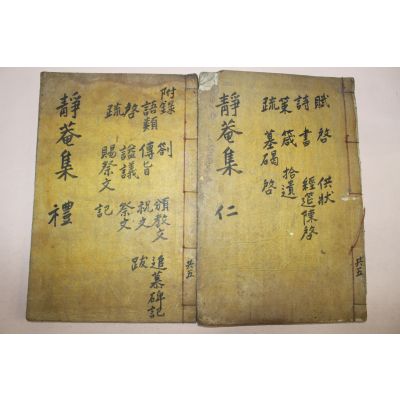 賦 啓 供狀
詩 書 經筵陳啓
策 箴 拾遺
疏 墓碣 啓
靜菴集 仁
共五
附錄 箚 頒敎文 追慕碑記
語類 傳旨 祝文 跋
啓 謚議 祭文
疏 賜祭文 記
靜菴集 禮
共五